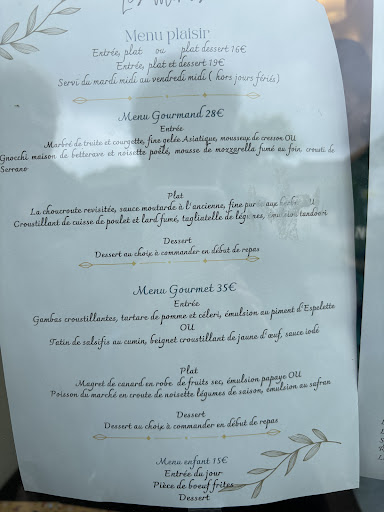 Menu plaisir
Entrée, plat ou plat dessert 16€
Entrée, plat et dessert 19€
Servi du mardi midi au vendredi midi ( hors jours fériés)
Menu Gourmand 28€
Entrée
Marbré de truite et courgette, fine gelée Asiatique, mousseux de cresson OU
Gnocchi maison de betterave et noisette poêlé, mousse de mozzarella fumé au foin, crousti de
Serrano
Plat
La choucroute revisitée, sauce moutarde à l'ancienne, fine purée aux herbes OU
Croustillant de cuisse de poulet et lard fumé, tagliatelle de légumes, émulsion tandoori
Dessert
Dessert au choix à commander en début de repas
Menu Gourmet 35€
Entrée
Gambas croustillantes, tartare de pomme et céleri, émulsion au piment d'Espelette
OU
Tatin de salsifis au cumin, beignet croustillant de jaune d'œuf, sauce iodé
Plat
Magret de canard en robe de fruits sec, émulsion papaye OU
Poisson du marché en croute de noisette légumes de saison, émulsion au safran
Dessert
Dessert au choix à commander en début de repas
Menu enfant 15€
Entrée du jour
Pièce de boeuf frites
Dessert